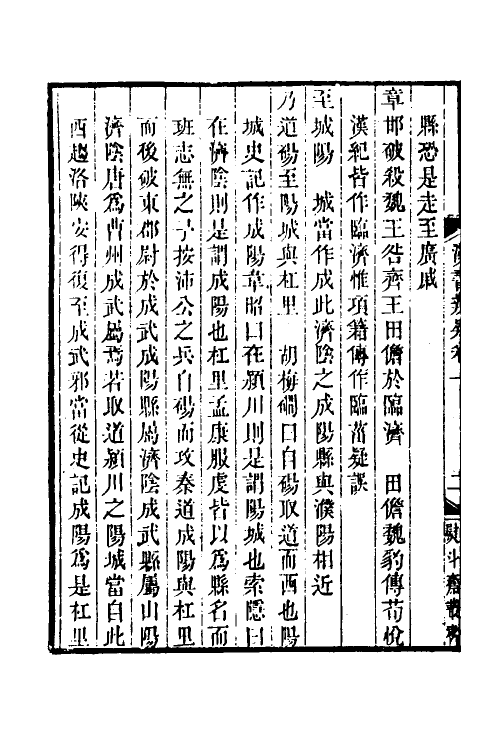 縣恐是走至廣戚
章邯破殺魏王咎齊王田儋於臨濟　田儋魏豹傳荀悅
漢紀皆作臨濟惟項籍傳作臨菑疑誤
至城陽　城當作成此濟陰之成陽縣與濮陽相近
乃道碭至陽城與杠里　胡梅磵曰自碭取道而西也陽
城史記作成陽韋昭曰在潁川則是謂陽城也索隱曰
在濟陰則是謂成陽也杠里孟康服虔皆以爲縣名而
班志無之予按沛公之兵自碭而攻秦道成陽與杠里
而後破東郡尉於成武成陽縣屬濟陰成武縣屬山陽
濟陰唐爲曹州成武屬焉若取道潁川之陽城當自此
西趨洛陝安得復至成武邪當從史記成陽爲是杠里
漢書疑卷一
斠齋叢